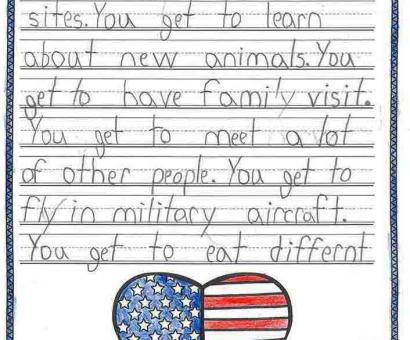 sites. You get to learn
about new animals. You
get to have family visit.
You get to meet a lot
of other people. You get to
fly in military aircraft.
You get to eat differnt